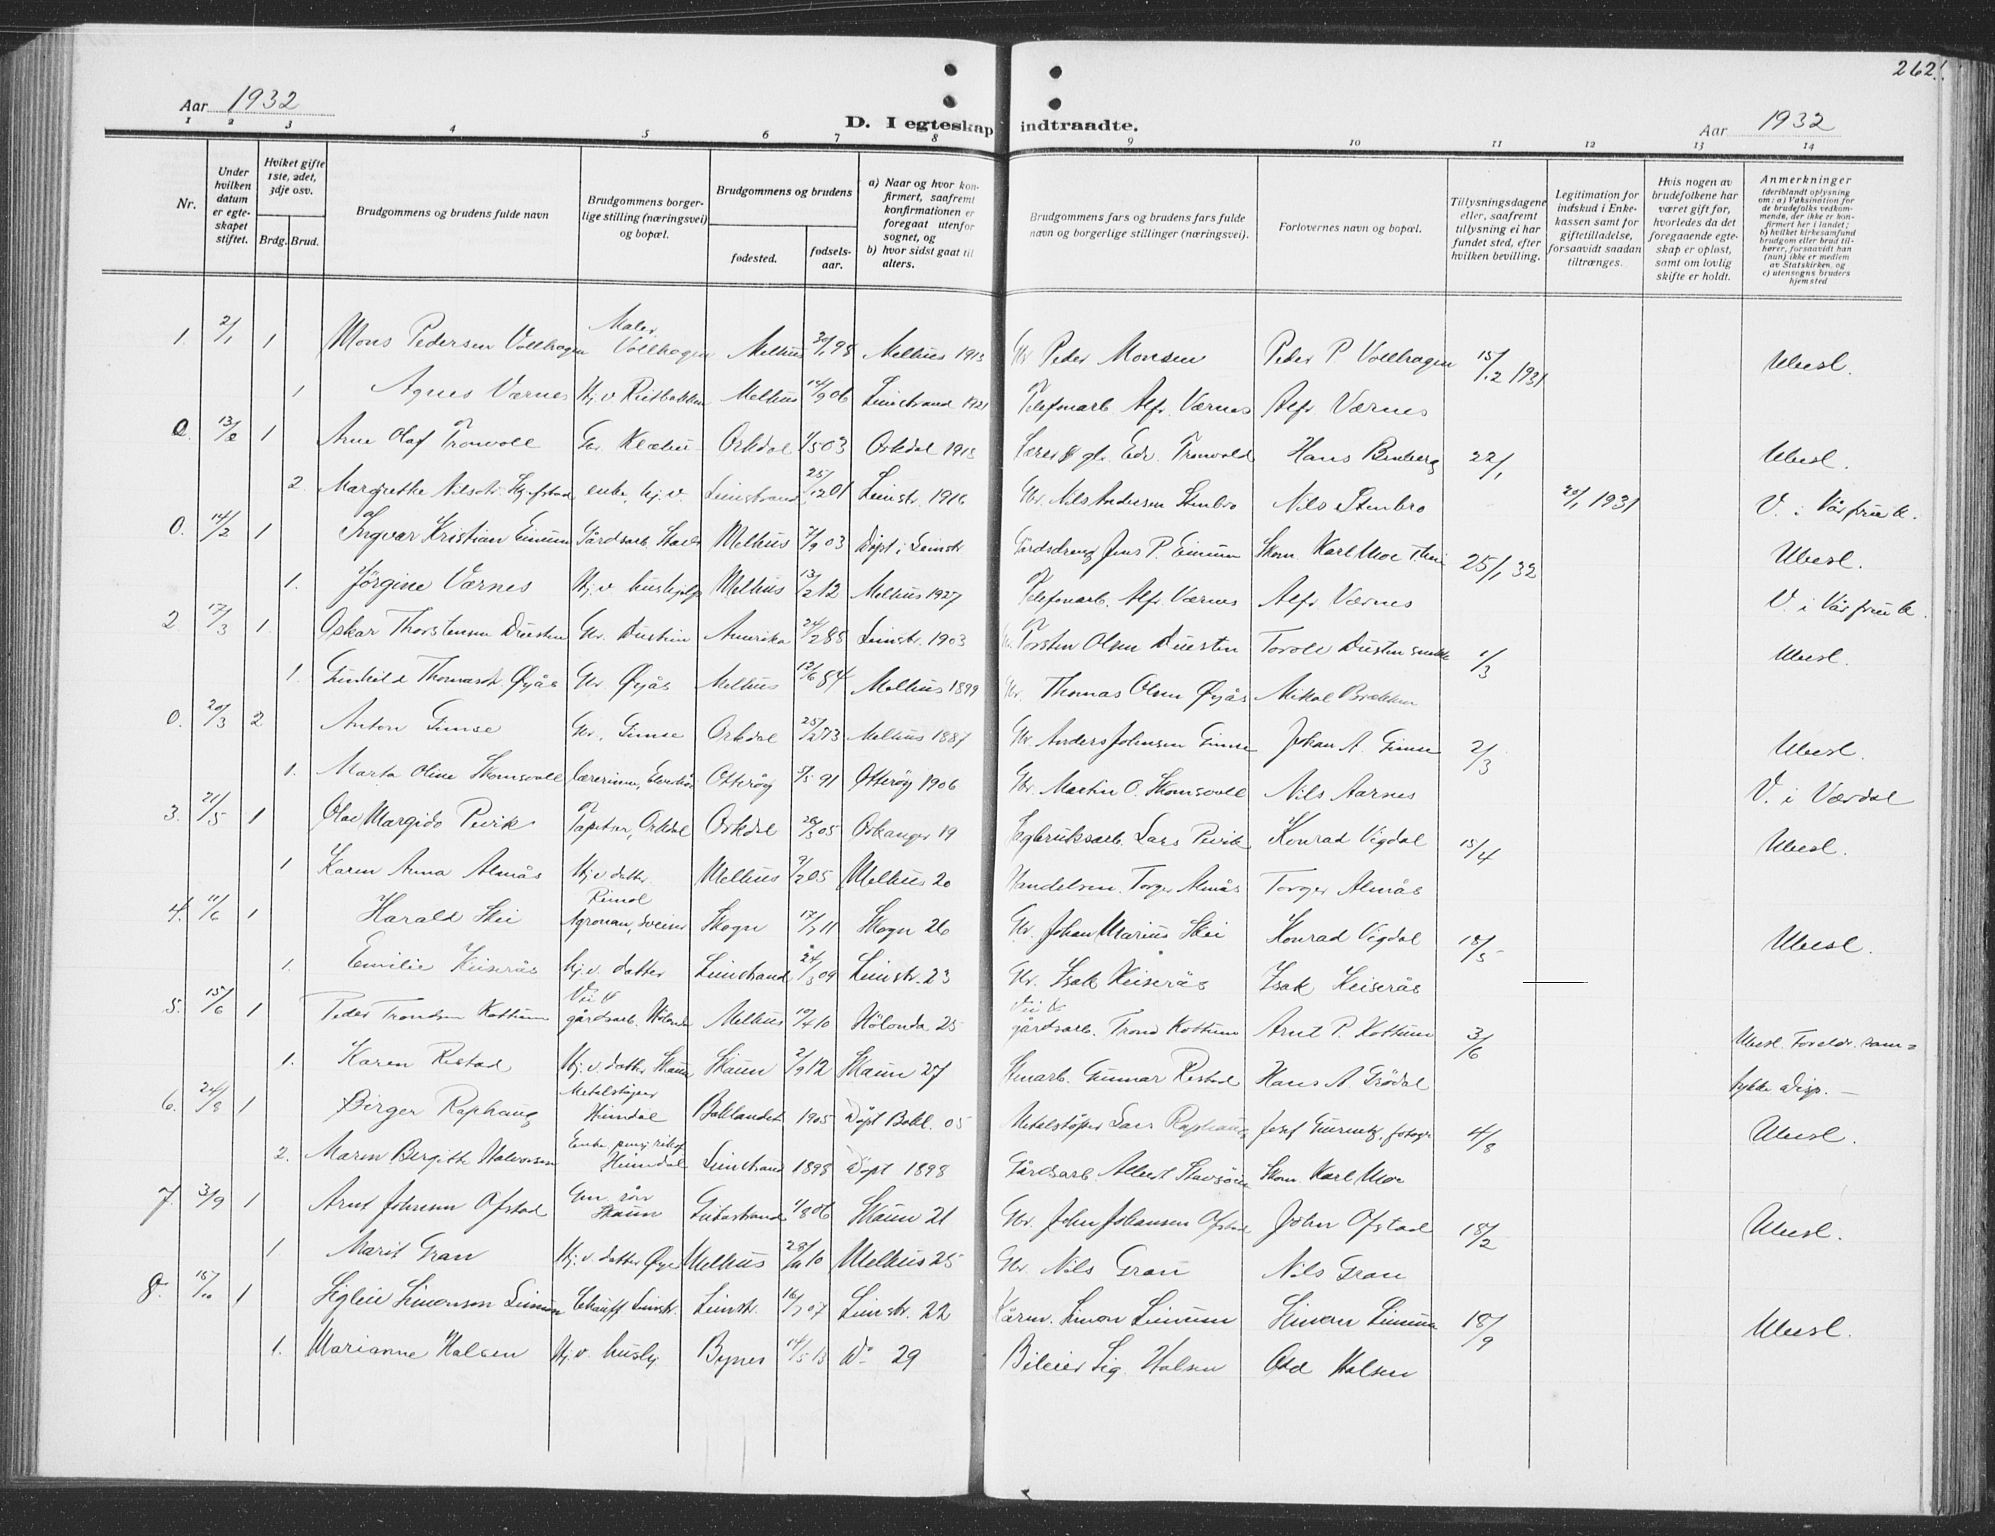 262.
Aar 1932
D. I egteskap indtraadte.
Aar 1932
1 2 3 4 5 6 7 8 9 10 11 12 13 14
Nr.
Under hvilken datum er egteskapet stiftet.
Hvilket gifte 1ste, 2det, 3dje osv.
Brdg. Brud.
Brudgommens og brudens fulde navn
Brudgommens borgerlige stilling (næringsvei) og bopæl.
Brudgommens og brudens
fødested.
fødselsaar.
a) Naar og hvor konfirmert, saafremt konfirmationen er foregaat utenfor sognet, og
b) hvor sidst gaat til alters.
Brudgommens fars og brudens fars fulde navn og borgerlige stillinger (næringsvei).
Forlovernes navn og bopæl.
Tillysningsdagene eller, saafremt tillysning ei har fundet sted, efter hvilken bevilling.
Legitimation for indskud i Enkekassen samt for giftetilladelse, forsaavidt saadan tiltrænges.
Hvis nogen av brudefolkene har været gift før, hvorledes da det foregaaende egteskap er opløst, samt om lovlig skifte er holdt.
Anmerkninger
(deriblandt oplysning om: a) Vaksination for de brudefolks vedkommende, der ikke er konfirmert her i landet;
b) hvilket kirkesamfund brudgom eller brud tilhører, forsaavidt han (hun) ikke er medlem av Statskirken, og
c) utensogns bruders hjemsted
1. 2/1 1 Mons Pedersen Vollhagen Maler Vollhagen Melhus 20/1 98 Melhus 1913 Gbr Peder Monsen Peder P Vollhagen 15/12 1931 Ubesl.
1 Agnes Værnes Hj. v Melhus 14/9 06 Leinstrand 1921 Telefonarb. Alfr. Værnes Alfr Værnes
0. 13/2 1 Arne Olaf Tronvoll Orkdal 1/5 03 Orkdal 1918 Edv. Tronvold Hans 22/1 Ubesl.
2. Margrethe Nilsdtr. enke, hj. v. Leinstrand 25/12 01 Leinstr. 1916 Gbr Nils Andersen Stenbro Nils Stenbro 1931 V. i Vår frue k.
0. 14/2 1 Ingvar Kristian Gårdsarb. Melhus 7/9 03 Døpt i Leinstr Jens P. Skom. Karl Moe 25/1 32 Ubesl.
1. Jørgine Værnes Hj. v. hushjelp Melhus 13/2 12 Melhus 1927 Telefonarb. Alfr. Værnes Alfr Værnes V. i Vår frue k.
2 17/3 1. Oskar Thorstensen Duesten Gbr. Amerika 24/2 88 Leinstr. 1903 Torsten Olsen Duesten Torolf Duesten 1/3 Ubesl.
1. Gunhild Thomasdtr. Øyås Gbr. Øyås Melhus 12/6 84 Melhus 1899 Thomas Olsen Øyås Mikal Brekken
0. 20/3 2 Anton Gimse Gbr. Gimse Orkdal 25/2 73 Melhus 1887 Gbr Anders Johnsen Gimse Johan A. Gimse 2/3 Ubesl.
1. Marta Oline Skomsvoll Lærerinne, Otterøy 5/5 91 Otterøy 1906 Gbr. Martin O. Skomsvoll Nils Aarnes V. i Værdal
3. 21/5 1 Olav Margido Pevik Tapetser, Orkdal Orkdal 05 Orkanger 19 Lars Pevik Konrad Vigdal 15/4 Ubesl.
1 Karen Anna Almås Hj. v. datter Melhus 7/2 05 Melhus 20 Handelsm. Torger Almås Torger Almås
4. 11/6 1 Harald Skei Rimol Agronom, Skogn 17/7 11 Skogn 26 Gbr. Johan Marius Skei Konrad Vigdal 18/5 Ubesl.
1. Emilie Keiserås hj. v. datter Leinstrand 24/5 09 Leinstr. 23 Gbr. Isak Keiserås Isak Keiserås
5. 15/6 1 Peder Trondsen Kottum gårdsarb. Hølonda Melhus 10/4 10 Hølonda 25 gårdsarb. Trond Kottum Arnt P. Kottum 3/6 Ubesl. Foreldr. sam=
1. Karen Ristad Hj. v. datter Skaun Skaun 2/9 12 Skaun 27 Gunnar Ristad Hans A Grødal tykke Disp. —
6. 24/8 1 Birger Raphaug Metalstøper Heimdal Baklandet 1905 Døpt Bakl. 05 Metalstøper Lars Raphaug Josef fotogr 4/8 Ubesl.
2. Maren Bergitte Halvorsen Enke Heimdal Leinstrand 1898 Døpt 1898 Gårdsarb Albert Skom. Karl Moe
7. 3/9 1 Arnt Johnsen Ofstad Skaun 4/8 06 Skaun 21 Gbr. John Johansen Ofstad John Ofstad 18/2 Ubesl.
1. Marit Gran Hj. v. datter Øye Melhus 28/10 10 Melhus 25 Gbr. Nils Gran Nils Gran
8. 15/10 1 Simonsen Leinum Leinstr. Leinstr. 16/7 07 Leinstr. 22 Simon Leinum Simon Leinum 18/9 Ubesl.
1. Marianne Halsen Hj. v. Bynes 14/5 13 Do 29 Bileier Sig. Halsen Odd Halsen